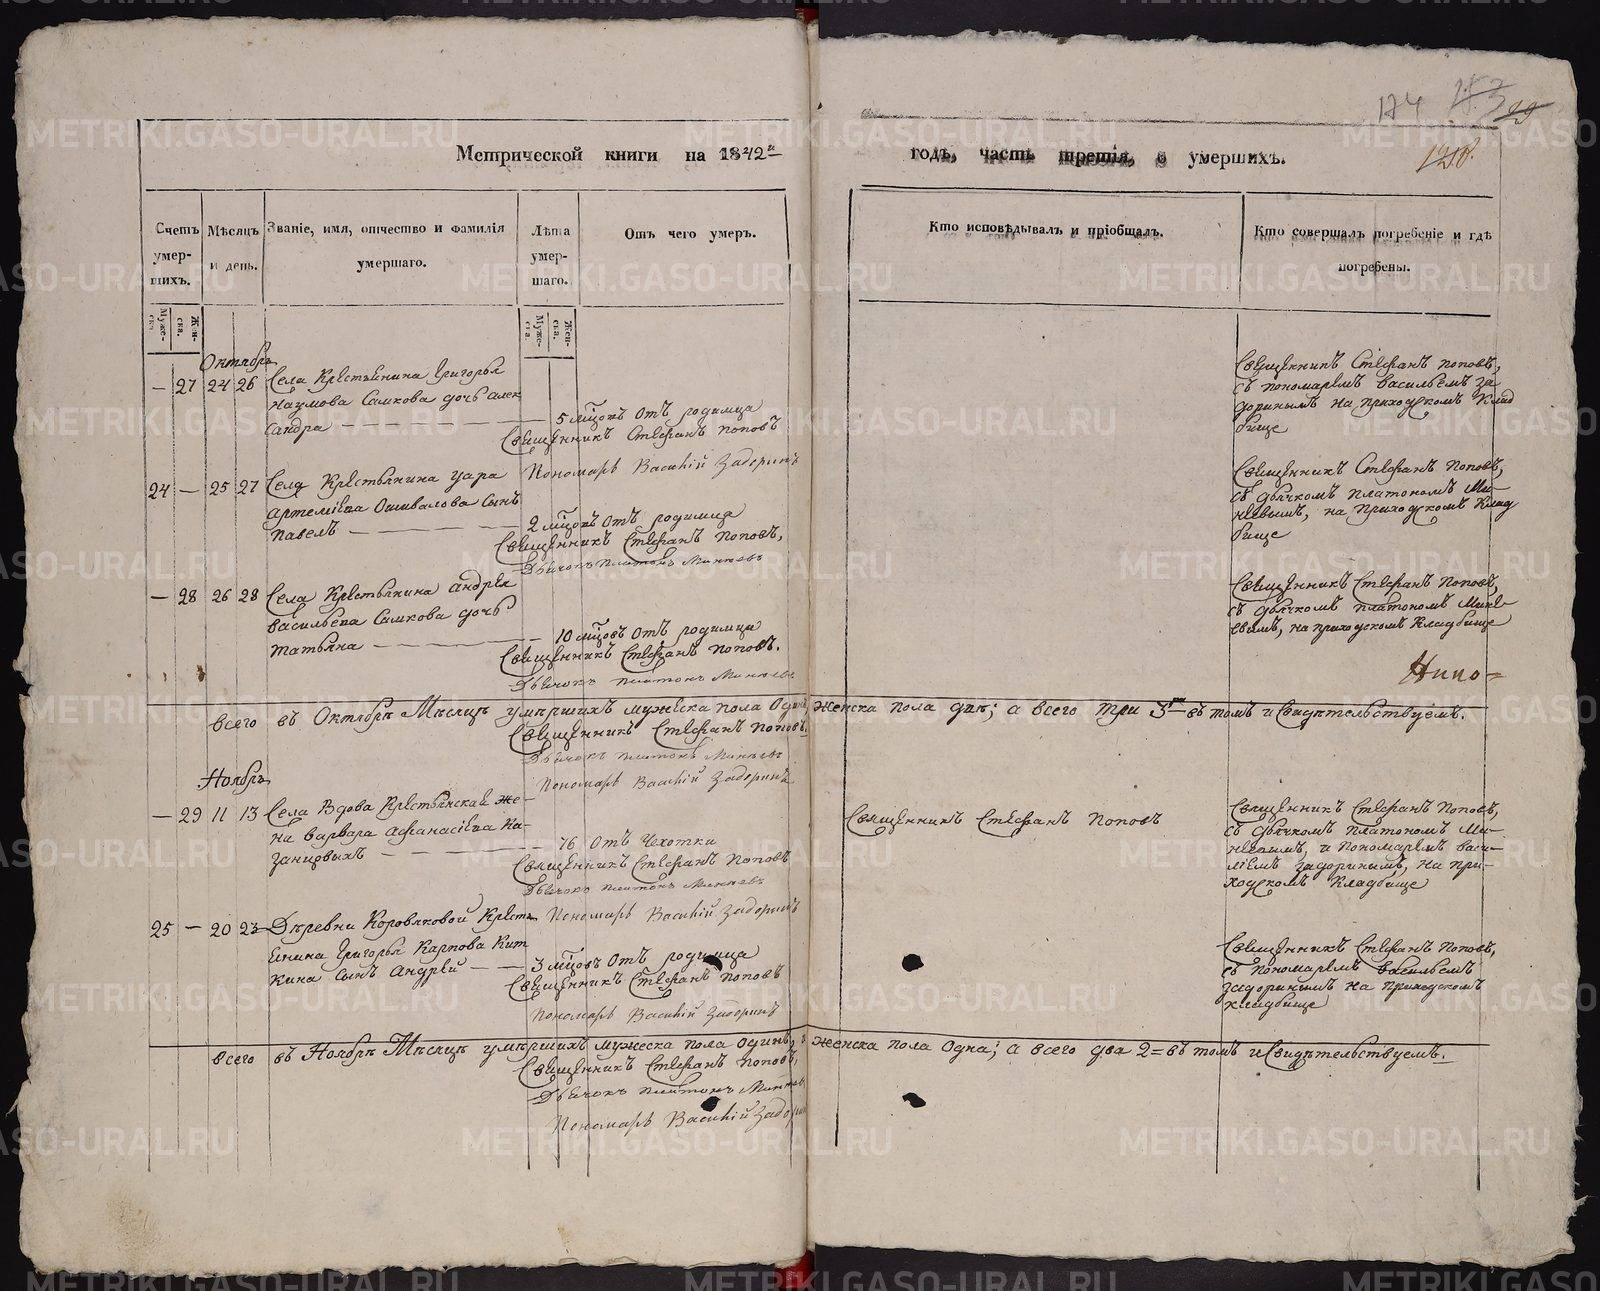 174
29
Метрической книги на 1842й годъ, часть третія, о умершихъ.
Счетъ умер-
шихъ.
Муже-
ска.
Жен-
ска.
Мѣсяцъ
и день.
Званіе, имя, отчество и фамилія
умершаго.
Лѣта
умер-
шаго.
Муже-
ска.
Жен-
ска.
Отъ чего умеръ.
Кто исповѣдывалъ и пріобщалъ.
Кто совершалъ погребеніе и гдѣ
погребены.
Октябрь
— 27 24 26 Села Крестьянина Григорья
Наумова Самкова дочь Алек
сандра — 5 мѣцовъ Отъ родимца
Священникъ Стефанъ Поповъ
Пономарь Василій Задоринъ
Священникъ Стефанъ Поповъ,
съ пономаремъ Васильемъ За
доринымъ на приходскомъ Клад
бище
24 — 25 27 Села Крестьянина
Артеміева сынъ
Павелъ — 2 мѣцовъ Отъ родимца
Священникъ Стефанъ Поповъ,
Дьячокъ Платонъ Минѣевъ
Священникъ Стефанъ Поповъ,
съ дьячкомъ Платономъ Ми-
нѣевымъ, на Приходскомъ Клад
бище
— 28 26 28 Села Крестьянина Андрея
Васильева Самкова дочь
Татьяна — 10 мѣцовъ Отъ родимца
Священникъ Стефанъ Поповъ.
Дьячокъ Платонъ Минѣевъ
Священникъ Стефанъ Поповъ,
съ дьячкомъ Платономъ Минѣ-
евымъ, на приходскомъ Кладбище
всего въ Октябрѣ Мѣсяцѣ умершихъ мужеска пола Одинъ, женска пола двѣ; а всего три 3 въ томъ и Свидѣтельствуемъ.
Священникъ Стефанъ Поповъ.
Дьячокъ Платонъ Минѣевъ
Пономарь Василій Задоринъ
Ноябрь
— 29 11 13 Села Вдова Крестьянская же-
на Варвара Афанасіева Ка-
занцовыхъ — 76 Отъ Чехотки
Священникъ Стефанъ Поповъ
Дьячокъ Платонъ Минѣевъ
Пономарь Василій Задоринъ
Священникъ Стефанъ Поповъ
Священникъ Стефанъ Поповъ,
съ дьячкомъ Платономъ Ми-
нѣевымъ, и Пономаремъ Васи-
льемъ Задоринымъ, на При-
ходскомъ Кладбище
25 — 20 23 Деревни Коровяковой Кресть
янина Григорья Карпова Кит
кина сынъ Андрей — 3 мѣцовъ Отъ родимца
Священникъ Стефанъ Поповъ
Пономарь Василій Задоринъ
Священникъ Стефанъ Поповъ,
съ Пономаремъ Васильемъ
Задоринымъ на Приходскомъ
кладбище
всего въ Ноябрѣ Мѣсяцѣ умершихъ мужеска пола Одинъ, женска пола Одна; а всего два 2= въ томъ и Свидѣтельствуемъ.
Священникъ Стефанъ Поповъ,
Дьячокъ Платонъ Минѣевъ
Пономарь Василій Задоринъ
METRIKI.GASO-URAL.RU